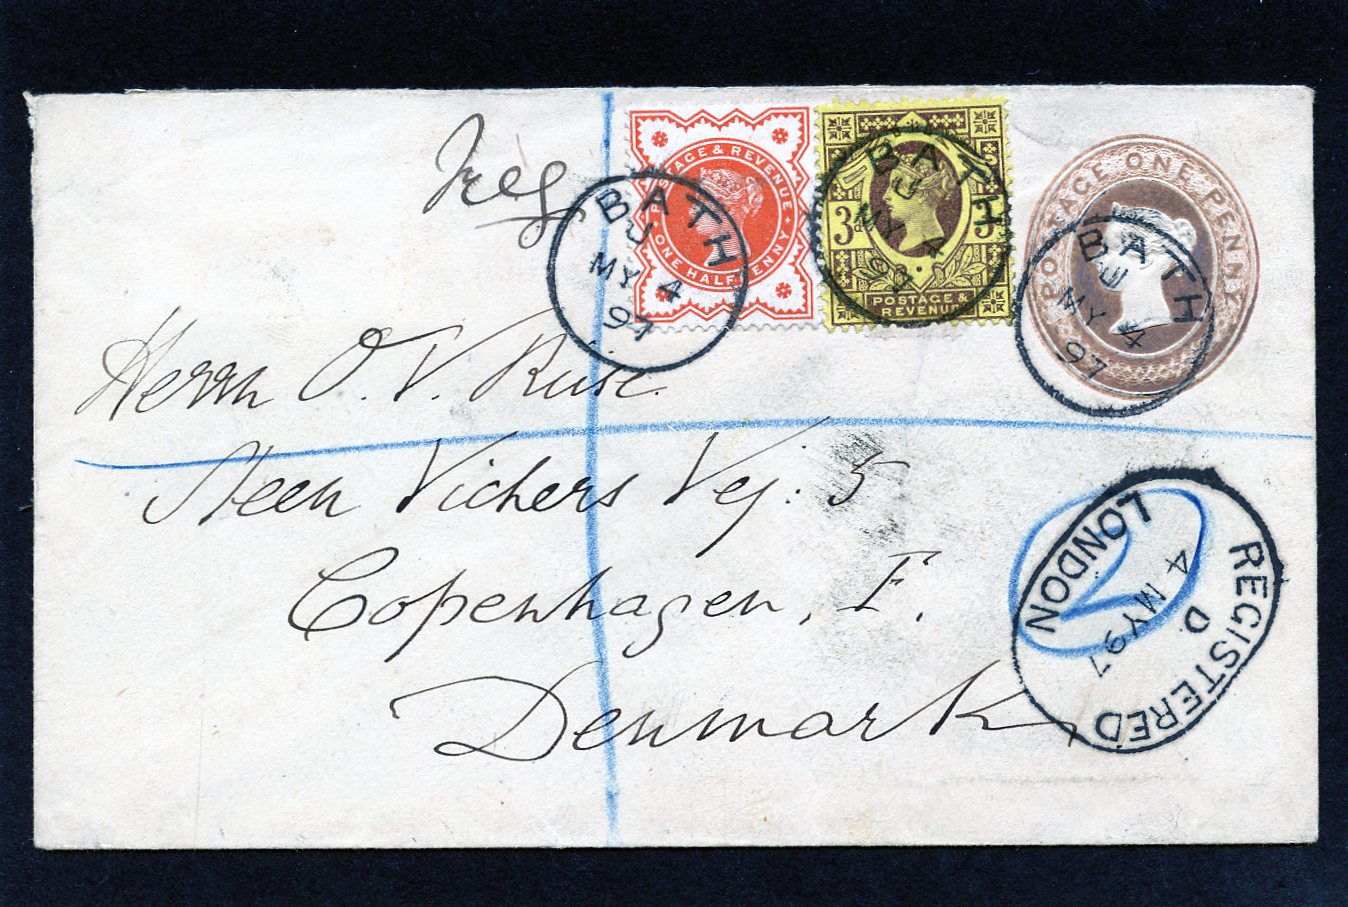 Reg
POSTAGE & REVENUE
ONE HALFPENNY
3d 3d
POSTAGE &
REVENUE
POSTAGE ONE PENNY
BATH
U
MY 4
97
BATH
U
MY 4
97
BATH
U
MY 4
97
Herrn O. V.
Steen Vichers Vej: 5
Copenhagen, F.
Denmark
REGISTERED
LONDON
4 MY 97
D
2